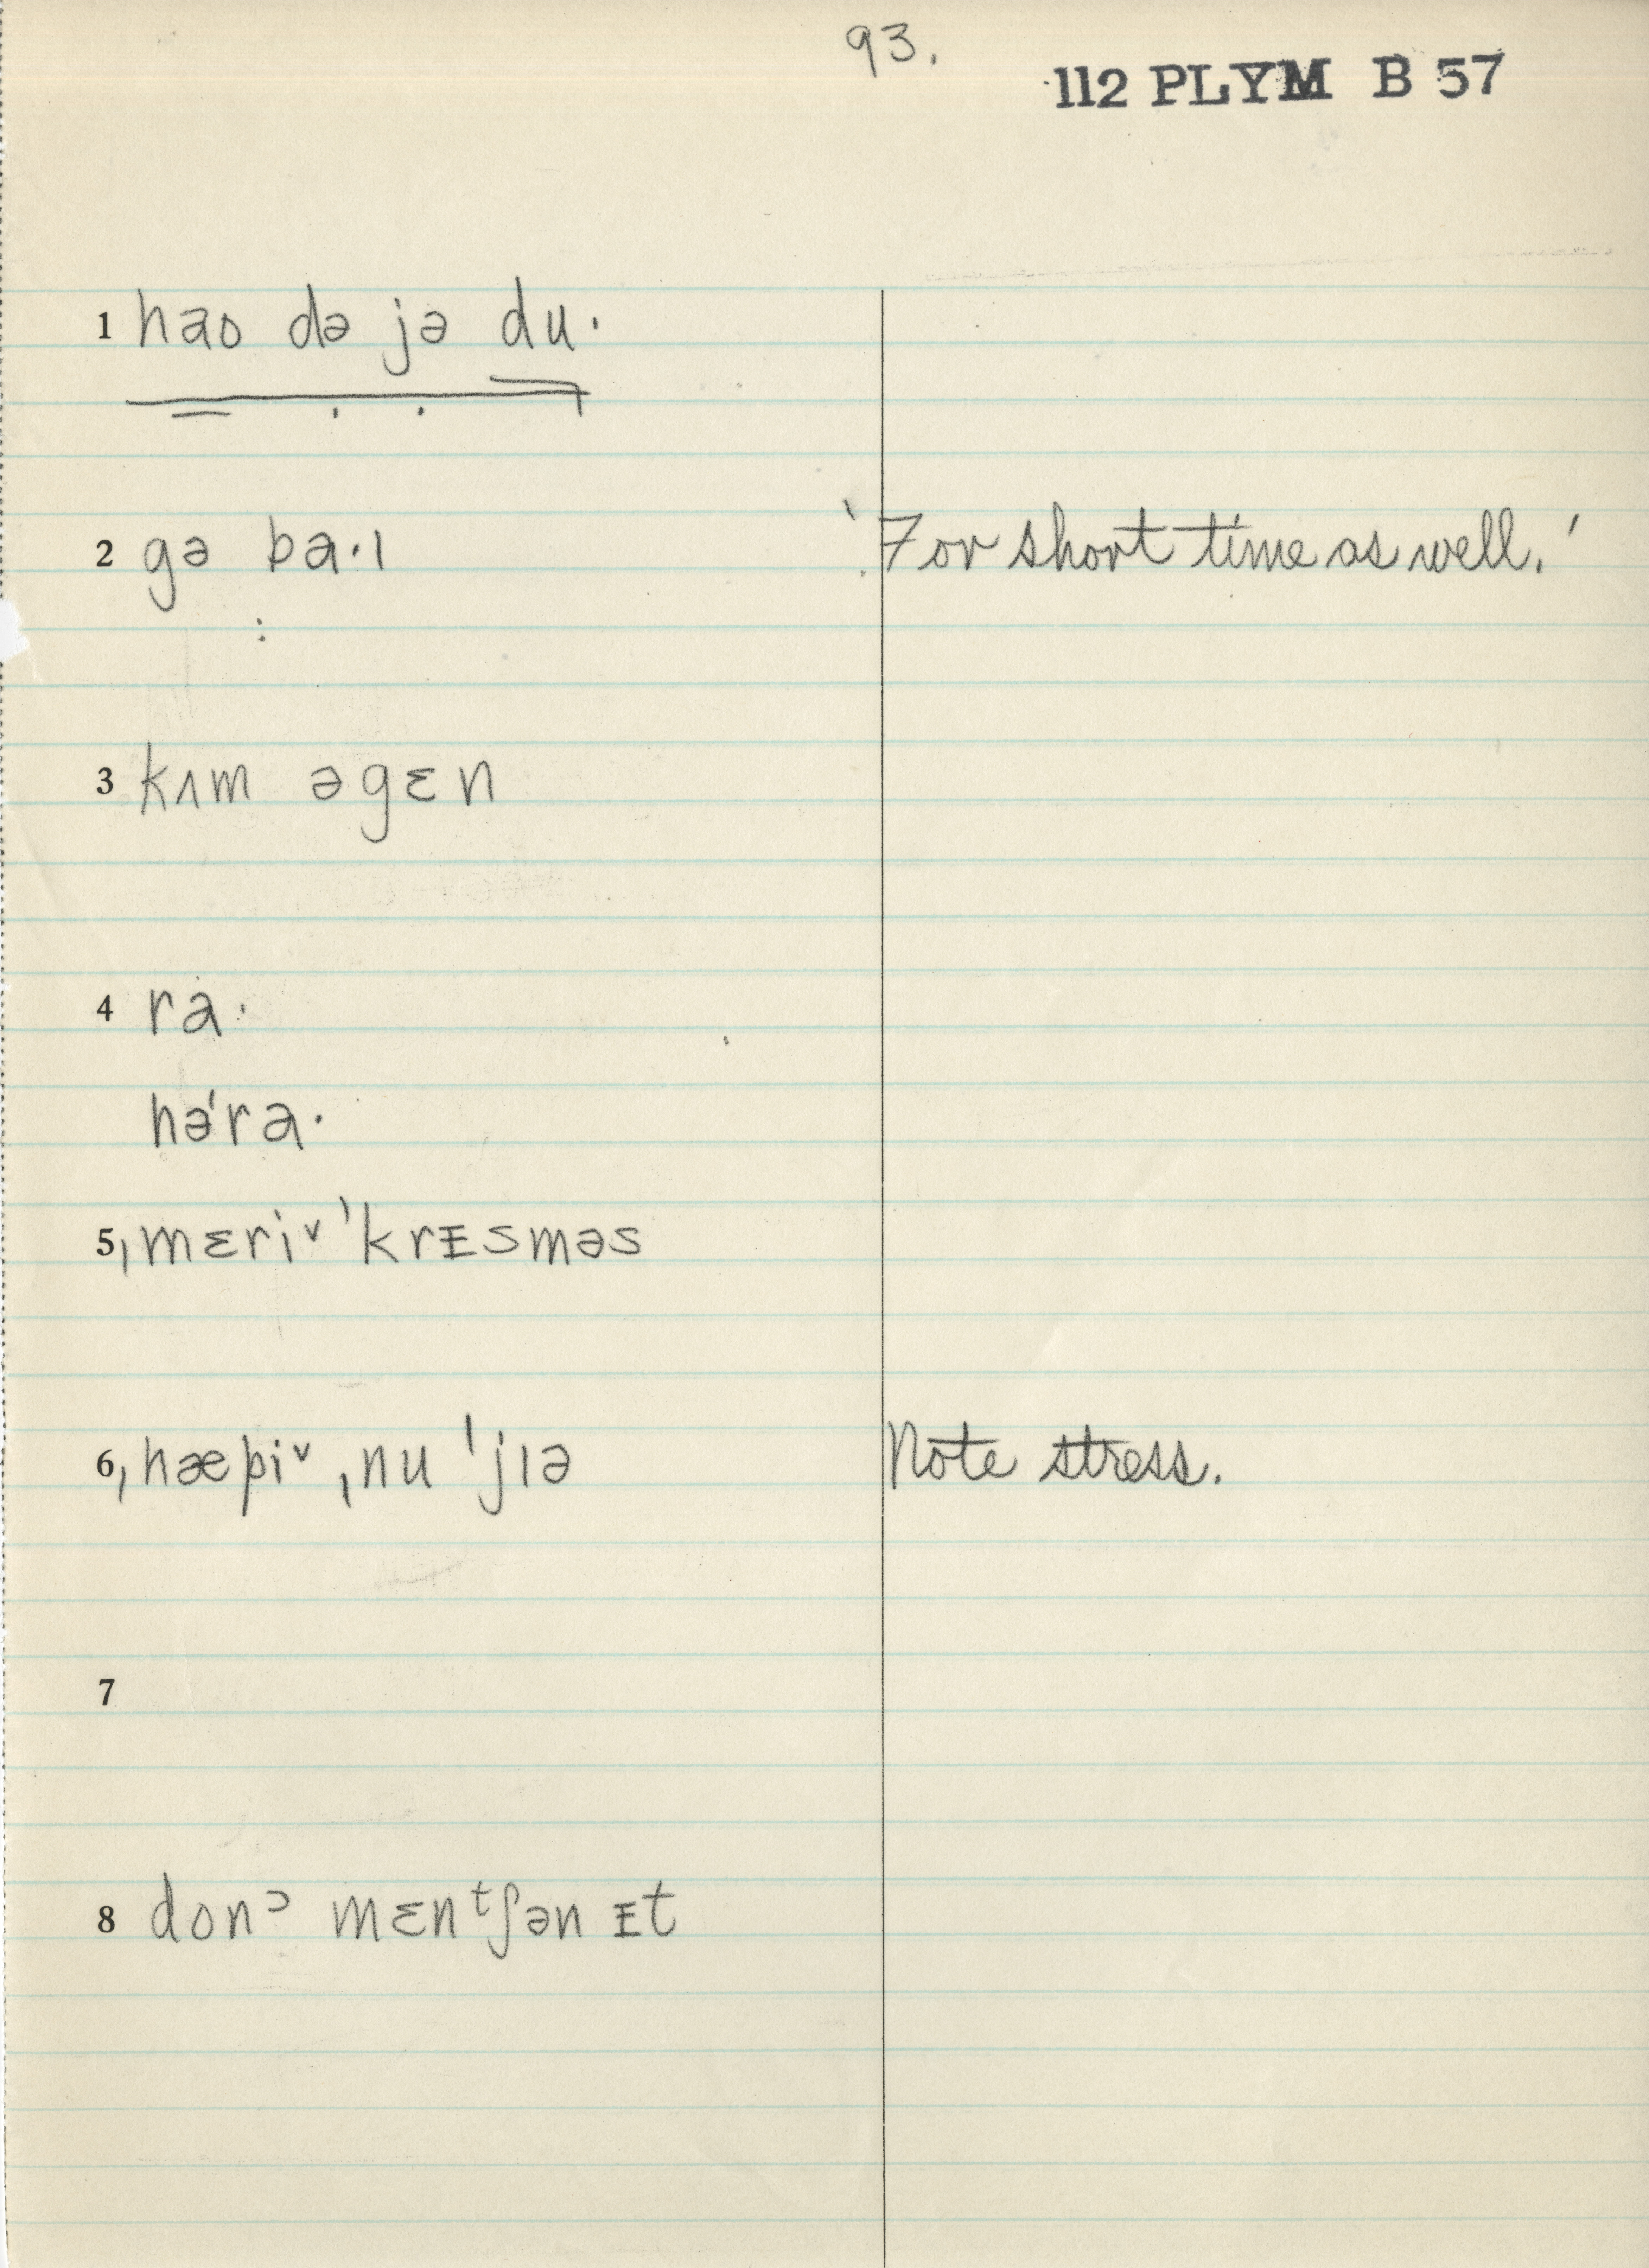 93.
112 PLYM B 57
1 hao də jə du·
2 gə ba·ɪ 'For short time as well.'
3 kʌm əgɛn
4 ra·
hə'ra·
5 ˌmɛriˇ 'krᵻsməs
6 ˌhæpiˇ ˌnu 'jɪə Note stress.
7
8 donᵓ mɛnᵗʃən ᵻt